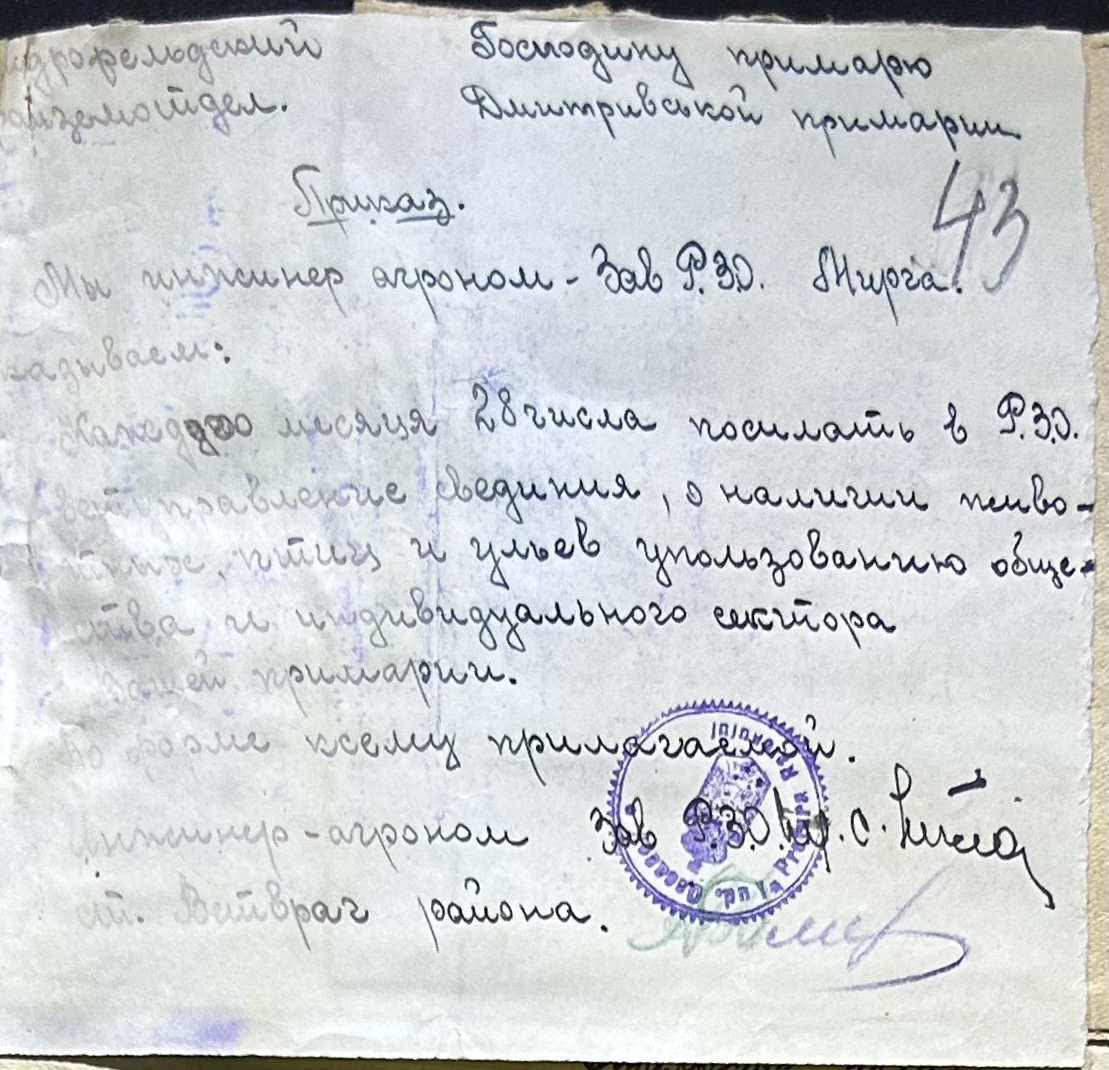 ндрофельдский
райземотдел.
Господину примарю
Дмитривськой примарии
43
Приказ.
Мы инжинер агроном - Зав Р.З.О. Мирча.
казываем:
Каждого месяця 28 числа посилать в Р.З.О.
ветуправление свединия, о наличии живо-
тных, птиц и ульев упользованию обще-
ства и индивидуального сектора
Вашей примарии.
По форме ксему прилагаемой.
Инжинер-агроном Зав Р.З.О.
ст. Ветврач района.